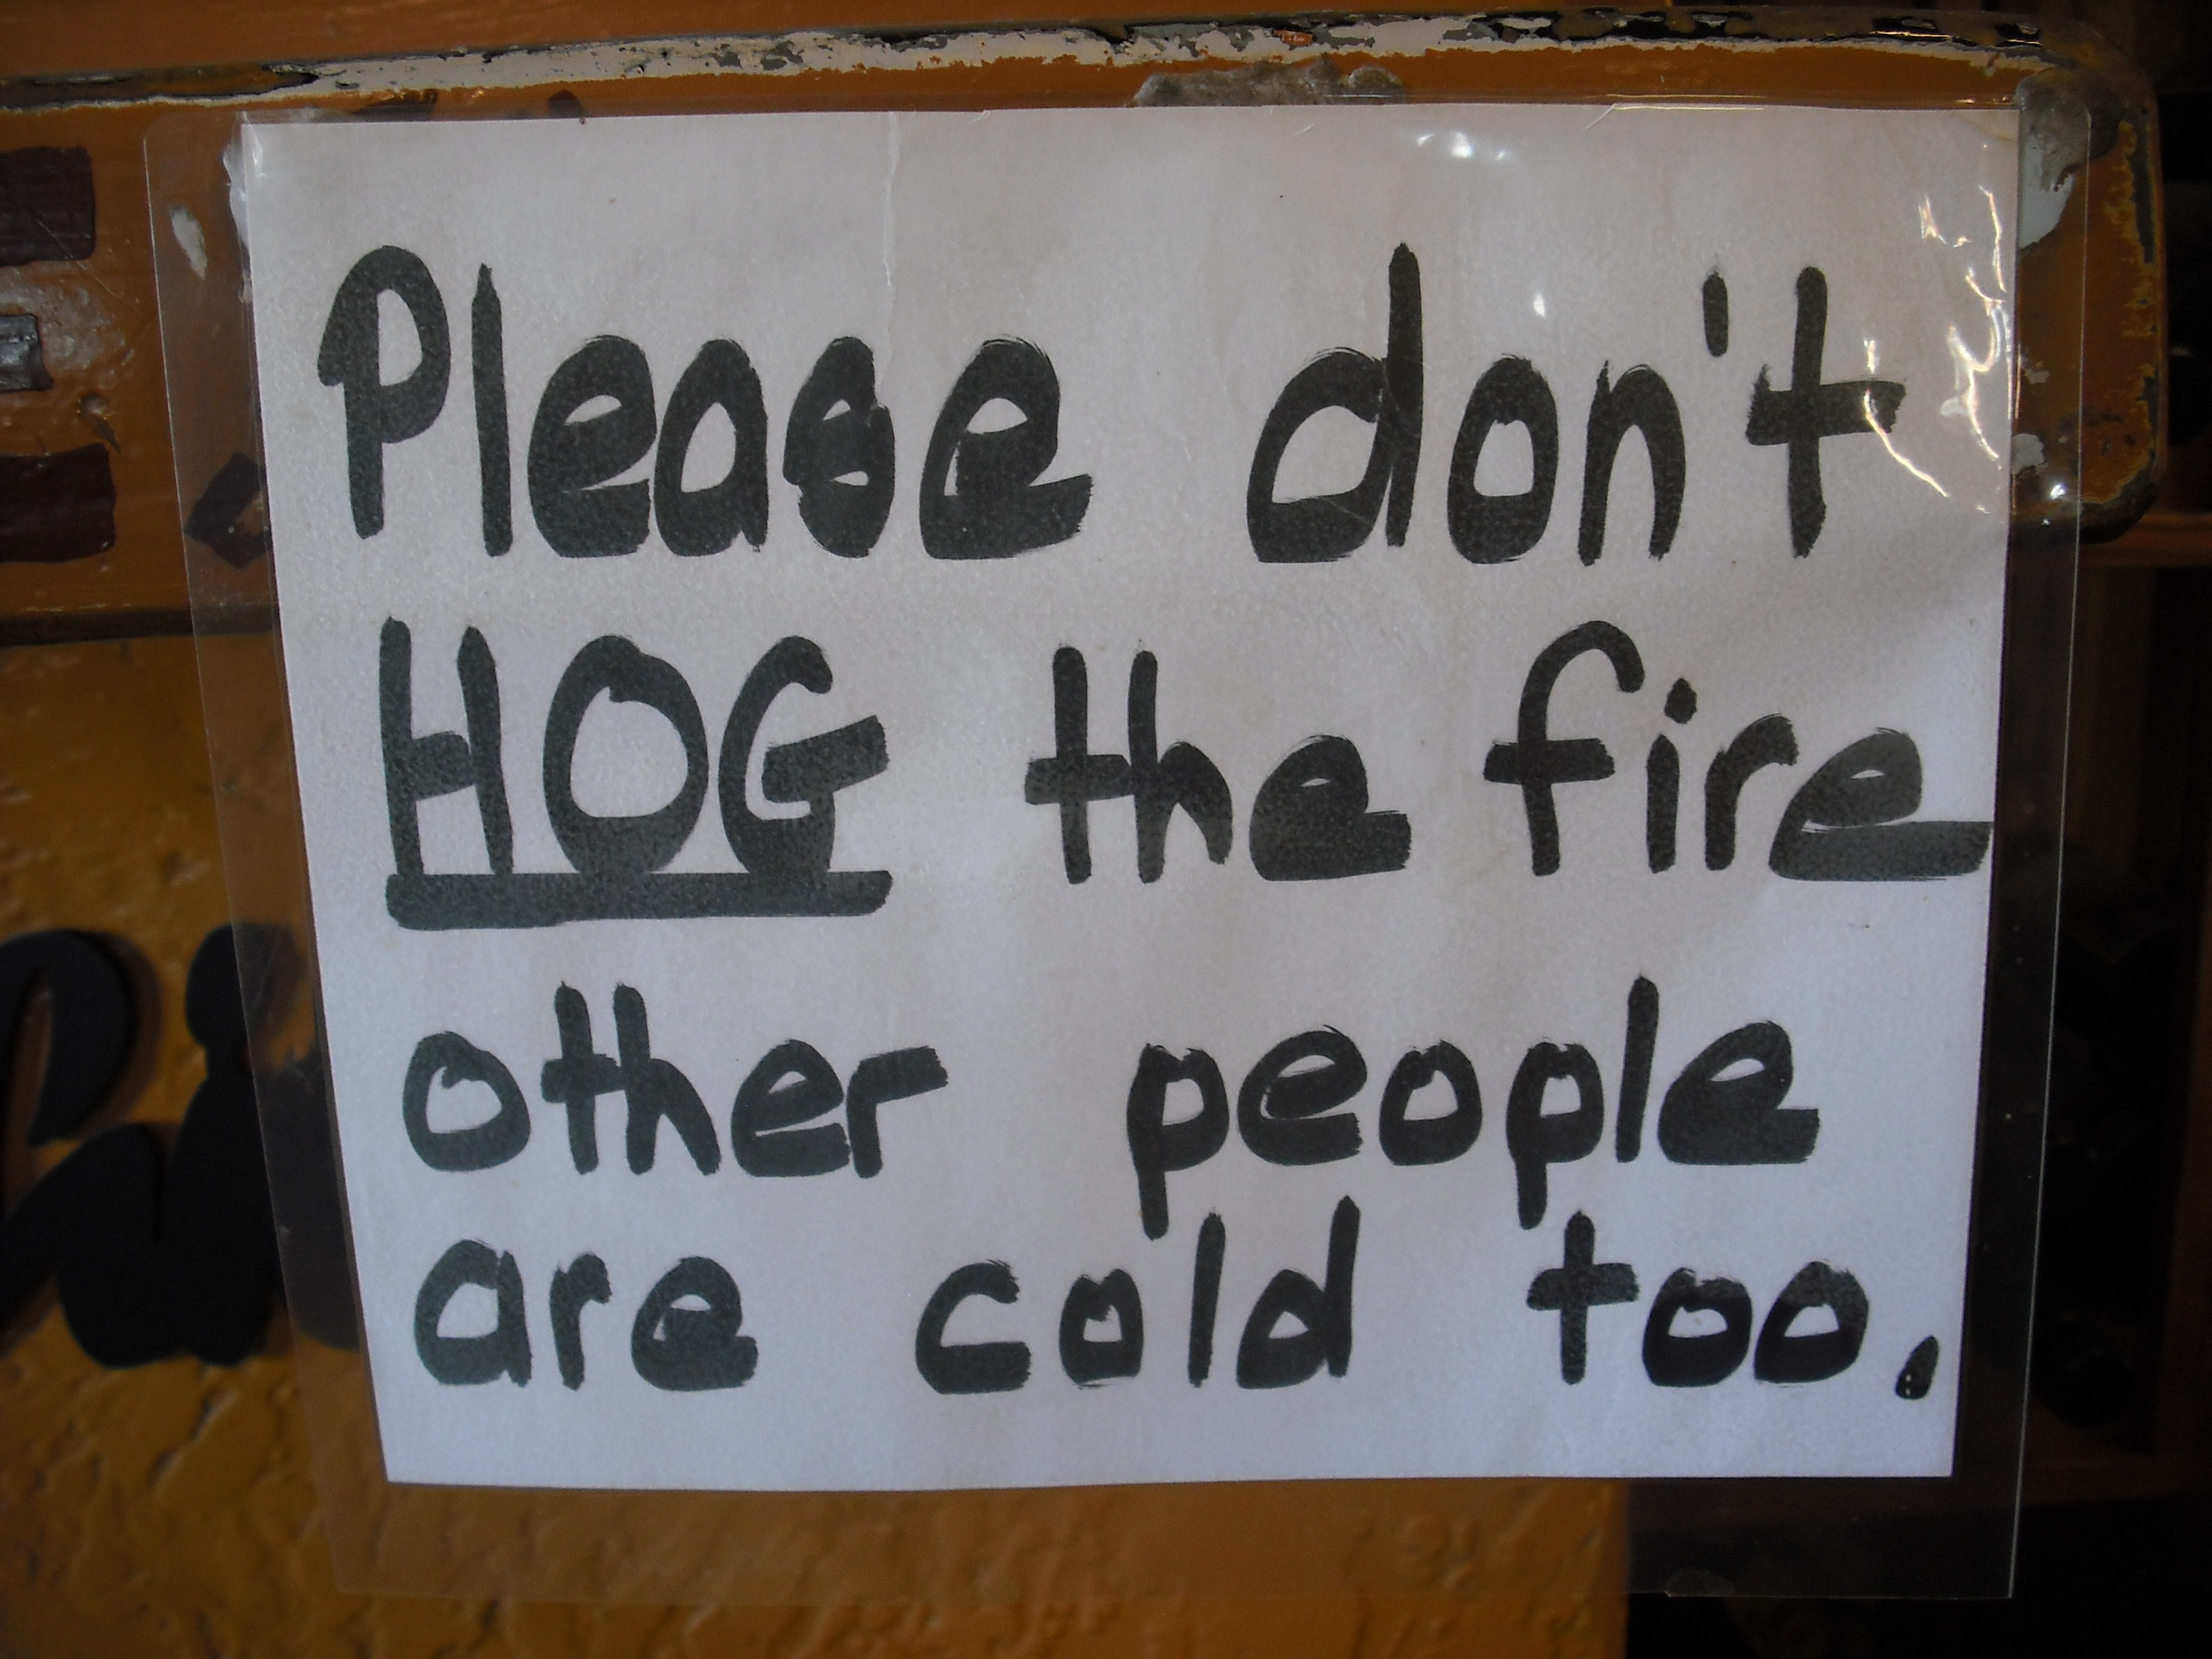 Please don't
HOG the fire
other people
are cold too.